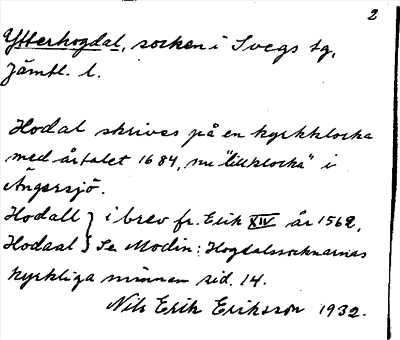 2
Ytterhogdal, socken i Svegs tg,
Jämtl. l.
Hodal skrives på en kyrkklocka
med årtalet 1684, nu "lillklocka" i
Ängersjö.
Hodall } i brev fr. Erik XIV år 1562,
Hodaal } Se Modin: Hogdalssocknarnas
kyrkliga minnen sid. 14.
Nils Erik Eriksson 1932.